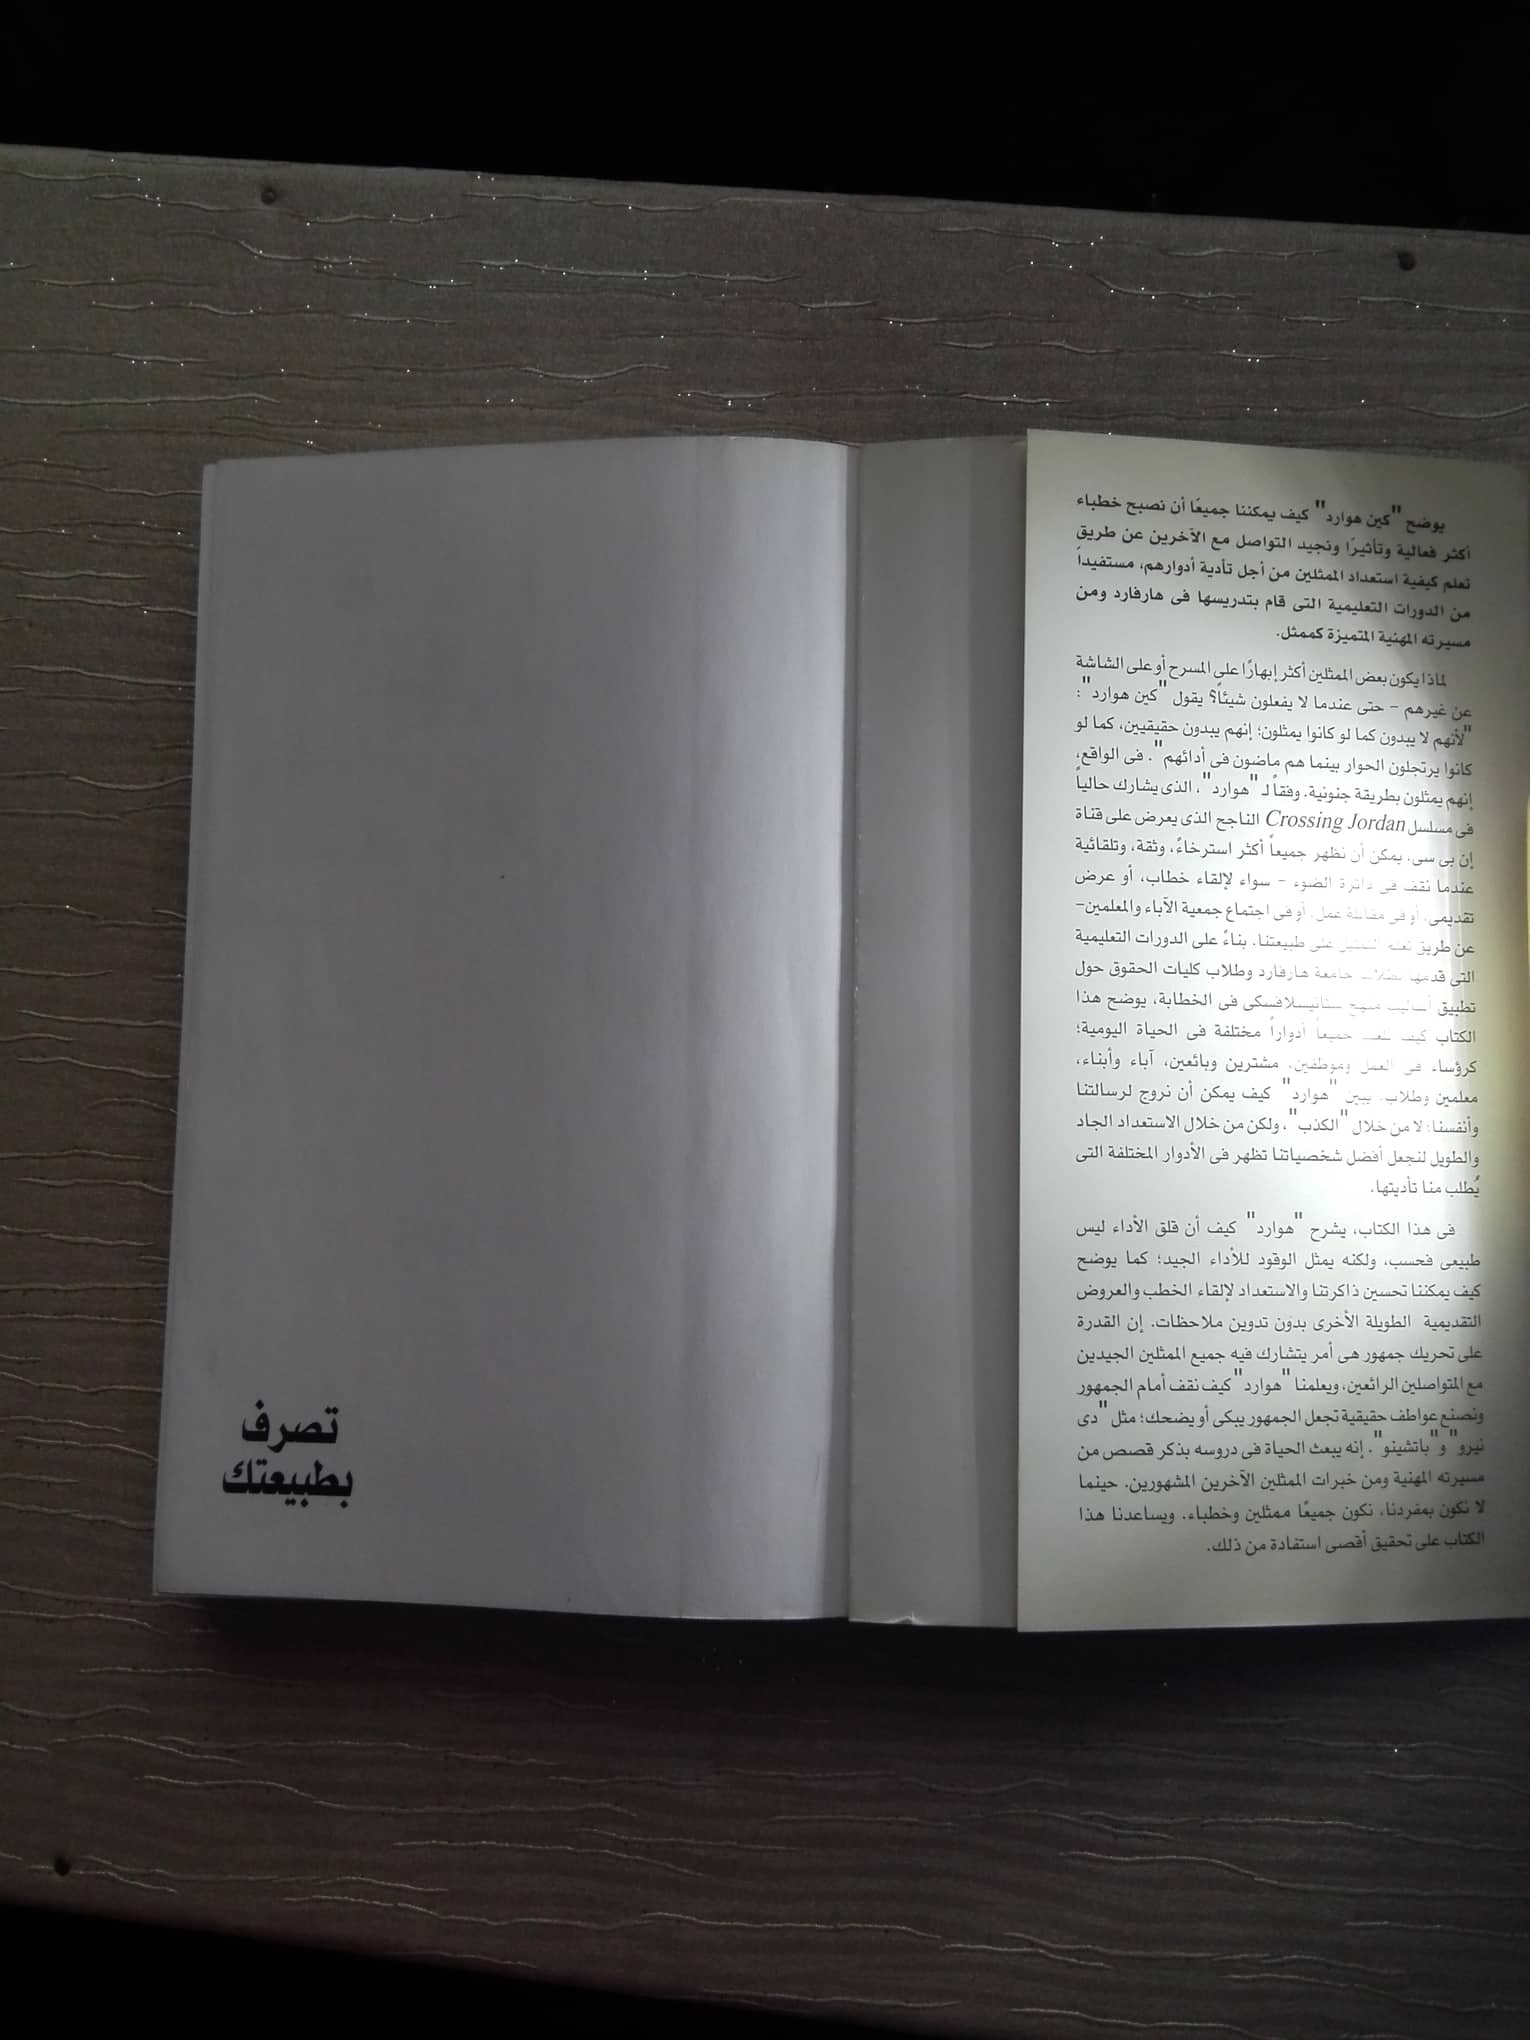 يوضح "كين هوارد" كيف يمكننا جميعًا أن نصبح خطباء
أكثر فعالية وتأثيرًا ونجيد التواصل مع الآخرين عن طريق
تعلم كيفية استعداد الممثلين من أجل تأدية أدوارهم، مستفيداً
من الدورات التعليمية التى قام بتدريسها فى هارفارد ومن
مسيرته المهنية المتميزة كممثل.
لماذا يكون بعض الممثلين أكثر إبهارًا على المسرح أو على الشاشة
عن غيرهم - حتى عندما لا يفعلون شيئاً؟ يقول "كين هوارد":
"لأنهم لا يبدون كما لو كانوا يمثلون؛ إنهم يبدون حقيقيين، كما لو
كانوا يرتجلون الحوار بينما هم ماضون فى أدائهم". فى الواقع،
إنهم يمثلون بطريقة جنونية. وفقاً لـ "هوارد"، الذى يشارك حالياً
فى مسلسل Crossing Jordan الناجح الذى يعرض على قناة
إن بى سى، يمكن أن نظهر جميعاً أكثر استرخاءً، وثقة، وتلقائية
عندما نقف فى دائرة الضوء - سواء لإلقاء خطاب، أو عرض
تقديمى، أو فى مقابلة عمل، أو فى اجتماع جمعية الآباء والمعلمين-
عن طريق على طبيعتنا. بناءً على الدورات التعليمية
التى قدمها جامعة هارفارد وطلاب كليات الحقوق حول
تطبيق أساليب منهج ستانيسلافسكى فى الخطابة، يوضح هذا
الكتاب كيف نلعب جميعاً أدواراً مختلفة فى الحياة اليومية؛
كرؤساء فى العمل وموظفين، مشترين وبائعين، آباء وأبناء،
معلمين وطلاب. يبين "هوارد" كيف يمكن أن نروج لرسالتنا
وأنفسنا؛ لا من خلال "الكذب"، ولكن من خلال الاستعداد الجاد
والطويل لنجعل أفضل شخصياتنا تظهر فى الأدوار المختلفة التى
يُطلب منا تأديتها.
فى هذا الكتاب، يشرح "هوارد" كيف أن قلق الأداء ليس
طبيعى فحسب، ولكنه يمثل الوقود للأداء الجيد؛ كما يوضح
كيف يمكننا تحسين ذاكرتنا والاستعداد لإلقاء الخطب والعروض
التقديمية الطويلة الأخرى بدون تدوين ملاحظات. إن القدرة
على تحريك جمهور هى أمر يتشارك فيه جميع الممثلين الجيدين
مع المتواصلين الرائعين، ويعلمنا "هوارد" كيف نقف أمام الجمهور
ونصنع عواطف حقيقية تجعل الجمهور يبكى أو يضحك؛ مثل "دى
نيرو" و"باتشينو". إنه يبعث الحياة فى دروسه بذكر قصص من
مسيرته المهنية ومن خبرات الممثلين الآخرين المشهورين. حينما
لا نكون بمفردنا، نكون جميعًا ممثلين وخطباء. ويساعدنا هذا
الكتاب على تحقيق أقصى استفادة من ذلك.
تصرف
بطبيعتك